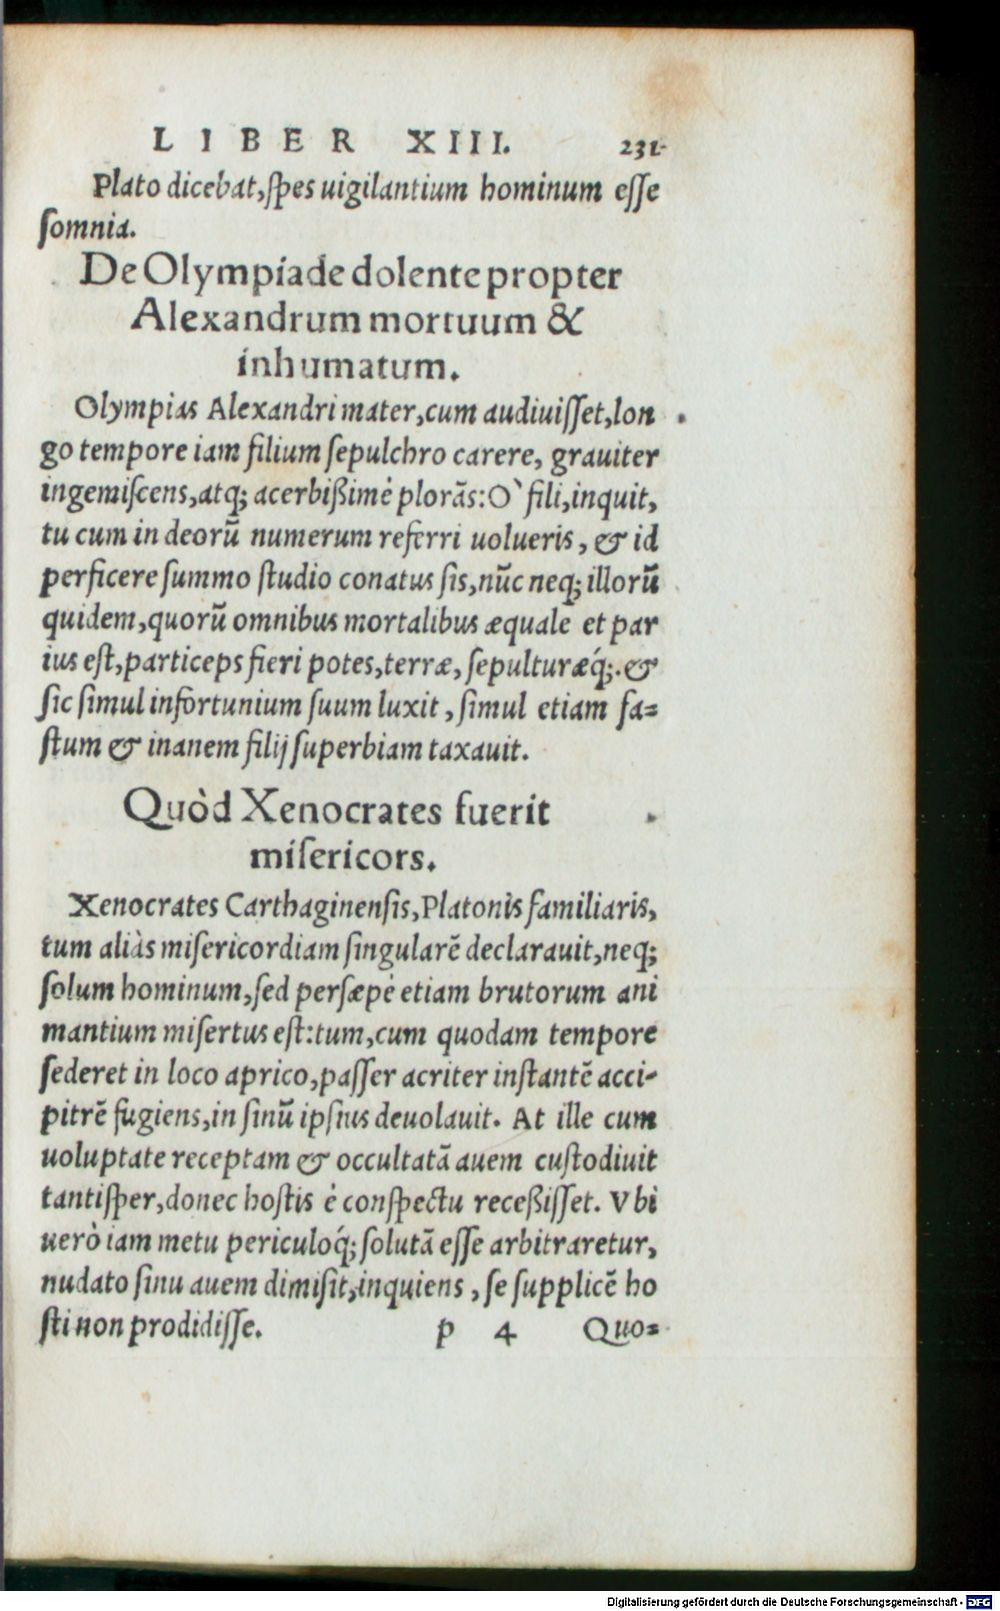 LIBER XIII. 231
Plato dicebat, ſpes uigilantium hominum eſſe
ſomnia.
De Olympiade dolente propter
Alexandrum mortuum &
inhumatum.
Olympias Alexandri mater, cum audiuiſſet, lon
go tempore iam filium ſepulchro carere, grauiter
ingemiſcens, atq; acerbißimè plorãs: O` fili, inquit,
tu cum in deorũ numerum referri uolueris, & id
perficere ſummo ſtudio conatus ſis, nũc neq; illorũ
quidem, quorũ omnibus mortalibus æquale et par
ius eſt, particeps fieri potes, terræ, ſepulturæq́;. &
ſic ſimul infortunium ſuum luxit, ſimul etiam fa=
ſtum & inanem filij ſuperbiam taxauit.
Quòd Xenocrates fuerit
miſericors.
Xenocrates Carthaginenſis, Platonis familiaris,
tum aliàs miſericordiam ſingularẽ declarauit, neq;
ſolum hominum, ſed perſæpè etiam brutorum ani
mantium miſertus eſt: tum, cum quodam tempore
ſederet in loco aprico, paſſer acriter inſtantẽ acci-
pitrẽ fugiens, in ſinũ ipſius deuolauit. At ille cum
uoluptate receptam & occultatã auem cuſtodiuit
tantiſper, donec hoſtis è conſpectu receßiſſet. Vbi
uerò iam metu periculoq́; ſolutã eſſe arbitraretur,
nudato ſinu auem dimiſit, inquiens, ſe ſupplicẽ ho
ſti non prodidiſſe. p 4 Quo=
Digitalisierung gefördert durch die Deutsche Forschungsgemeinschaft - DFG